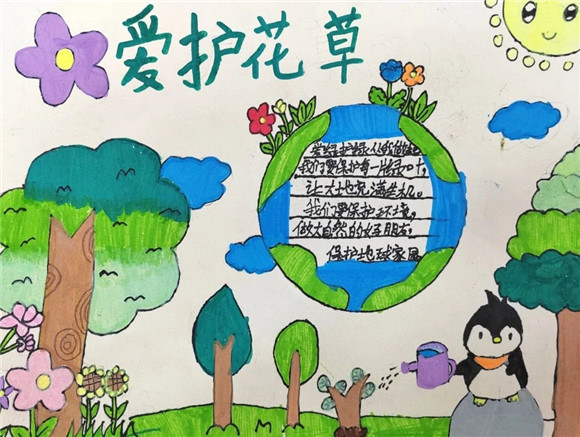 爱护花草
护绿从我做起
我们要保护每一片绿叶,
让大地充满生机。
我们要保护环境,
做大自然的好朋友,
保护地球家园